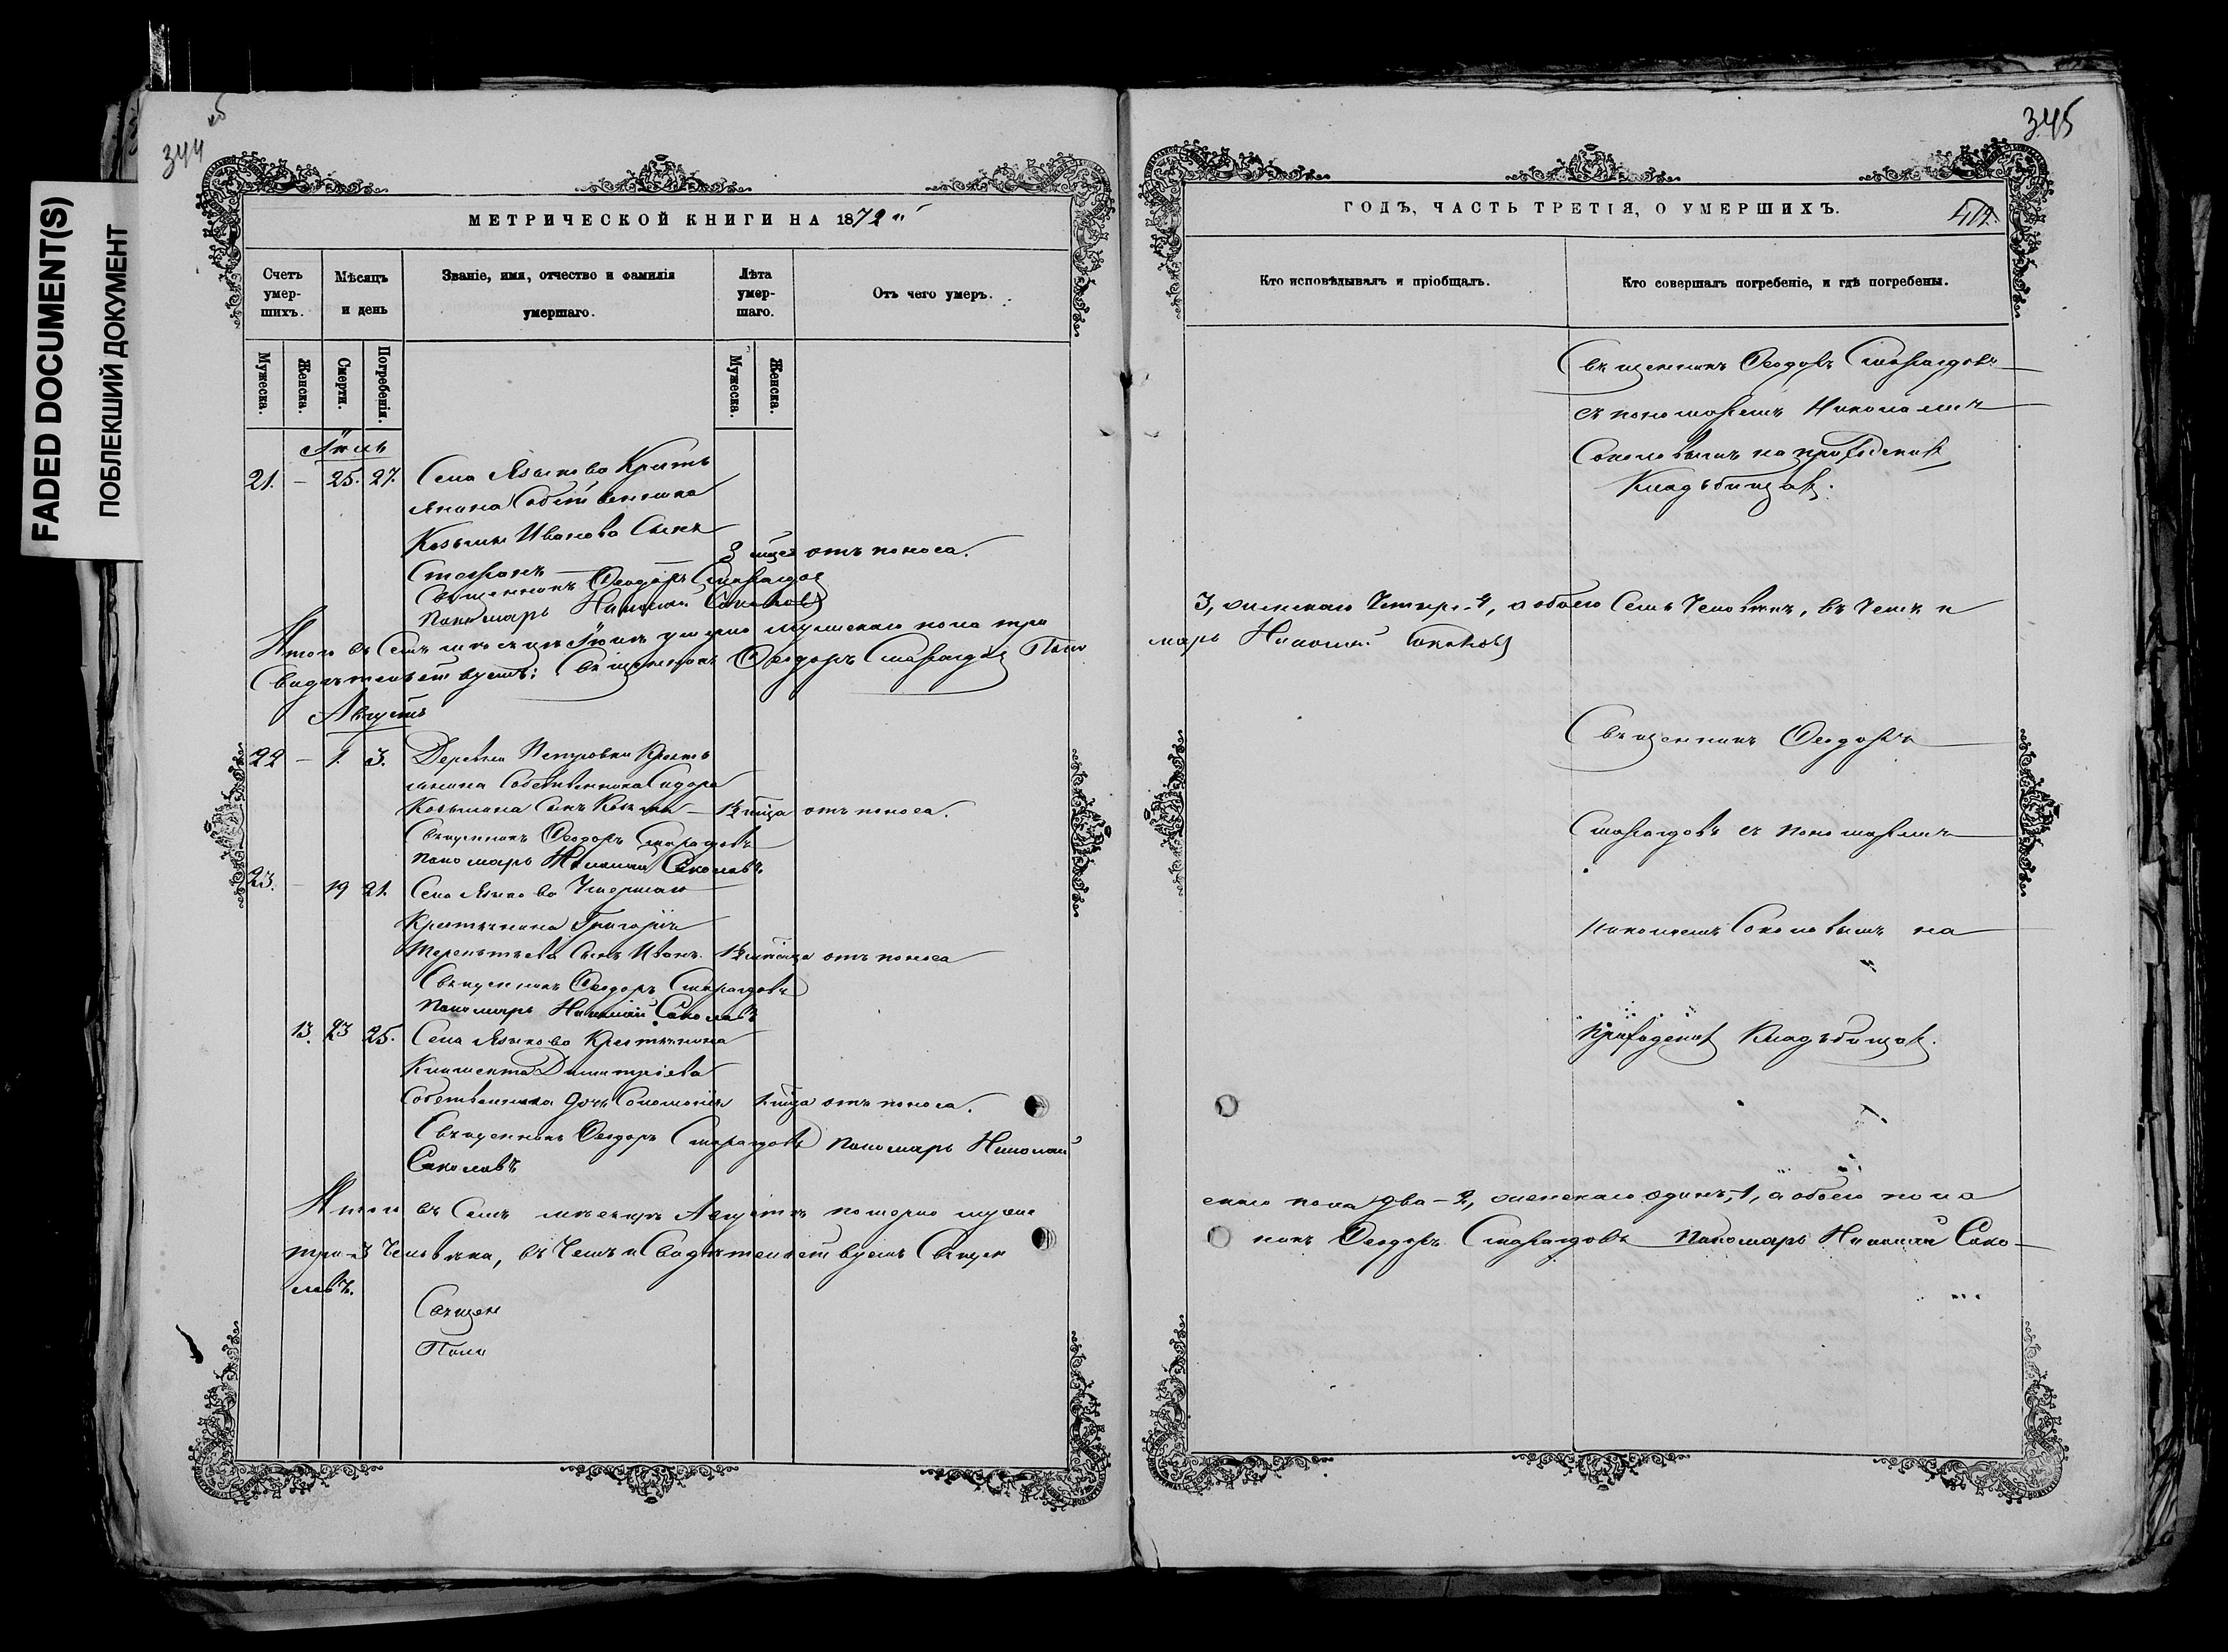 FADED DOCUMENT(S)
ПОБЛЕКШИЙ ДОКУМЕНТ
344 об
МЕТРИЧЕСКОЙ КНИГИ НА 1872 й
Счетъ умер-шихъ.
Мѣсяцъ и день
Званіе, имя, отчество и фамилія умершаго.
Лѣта умер-шаго.
Отъ чего умеръ.
Мужеска.
Женска.
Смерти.
Погребенія.
Мужеска.
Женска.
Іюль
21. – 25. 27. Села Языково Кресть
янина Собственника
Козьмы Иванова Сынъ
Стефанъ 3 мца отъ поноса.
Священникъ Ѳеодоръ Смарагдовъ
Пономарь Николай Соколовъ
Итого въ Семъ мѣсяцѣ Іюлѣ умерло мужескаго пола три
Свидѣтельствуемъ: Священникъ Ѳеодоръ Смарагдовъ Поно
Августъ
22 – 1. 3. Деревни Петровки Кресть
янина Собственника Сидора
Козьмина Сынъ отъ поноса.
Священникъ Ѳеодоръ Смарагдовъ
Пономарь Николай Соколовъ.
23. – 19 21. Села Языково
Крестьянина Григорія
Терентьева Сынъ Иванъ. отъ поноса
Священникъ Ѳеодоръ Смарагдовъ
Пономарь Николай Соколовъ
13. 23 25. Села Языково Крестьянина
Климента Димитріева
Собственника дочь Соломонія отъ поноса.
Священникъ Ѳеодоръ Смарагдовъ Пономарь Николай
Соколовъ
Итого въ Семъ мѣсяцѣ Августѣ померло муже
три-3 Человѣка, въ Чемъ и Свидѣтельствуемъ Священ
ловъ.
Священ
Поно
345
ГОДЪ, ЧАСТЬ ТРЕТІЯ, О УМЕРШИХЪ.
Кто исповѣдывалъ и пріобщалъ.
Кто совершалъ погребеніе, и гдѣ погребены.
Священникъ Ѳеодоръ Смарагдовъ
съ пономаремъ Николаемъ
Соколовымъ на приходскомъ
Кладъбищѣ.
3, женскаго Четыре-4, а обоего Семь Человѣкъ, въ Чемъ и
марь Николай Соколовъ
Священникъ Ѳеодоръ
Смарагдовъ съ пономаремъ
Николаемъ Соколовымъ на
приходскомъ Кладъбищѣ.
скаго пола два-2, женскаго одинъ,-1, а обоего пола
никъ Ѳеодоръ Смарагдовъ Пономарь Николай Соко